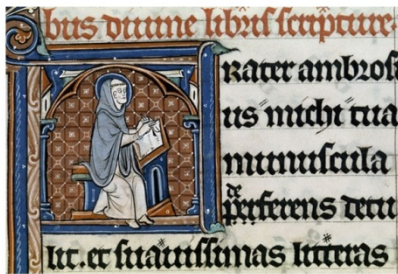 bus diuine libris scripture
Frater ambrosi
us michi tua
munuscula
perferens detu
lit. et suauissimas litteras